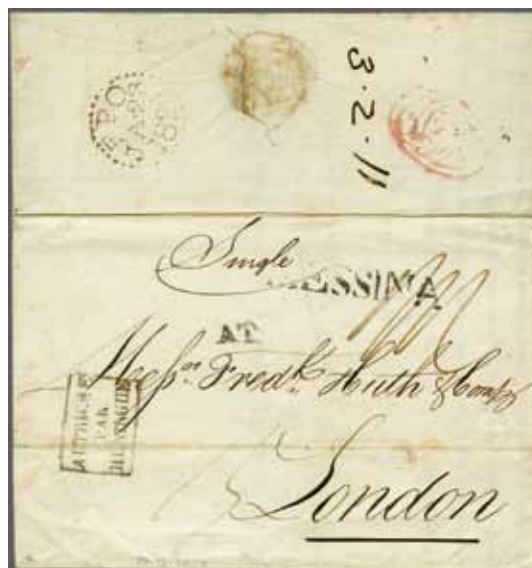 FPO
JA.28
3·2·11
Single
MESSINA
AT
Messrs. Fredk. Huth & Compy
AUTRICHE
PAR
HUNINGUE
London